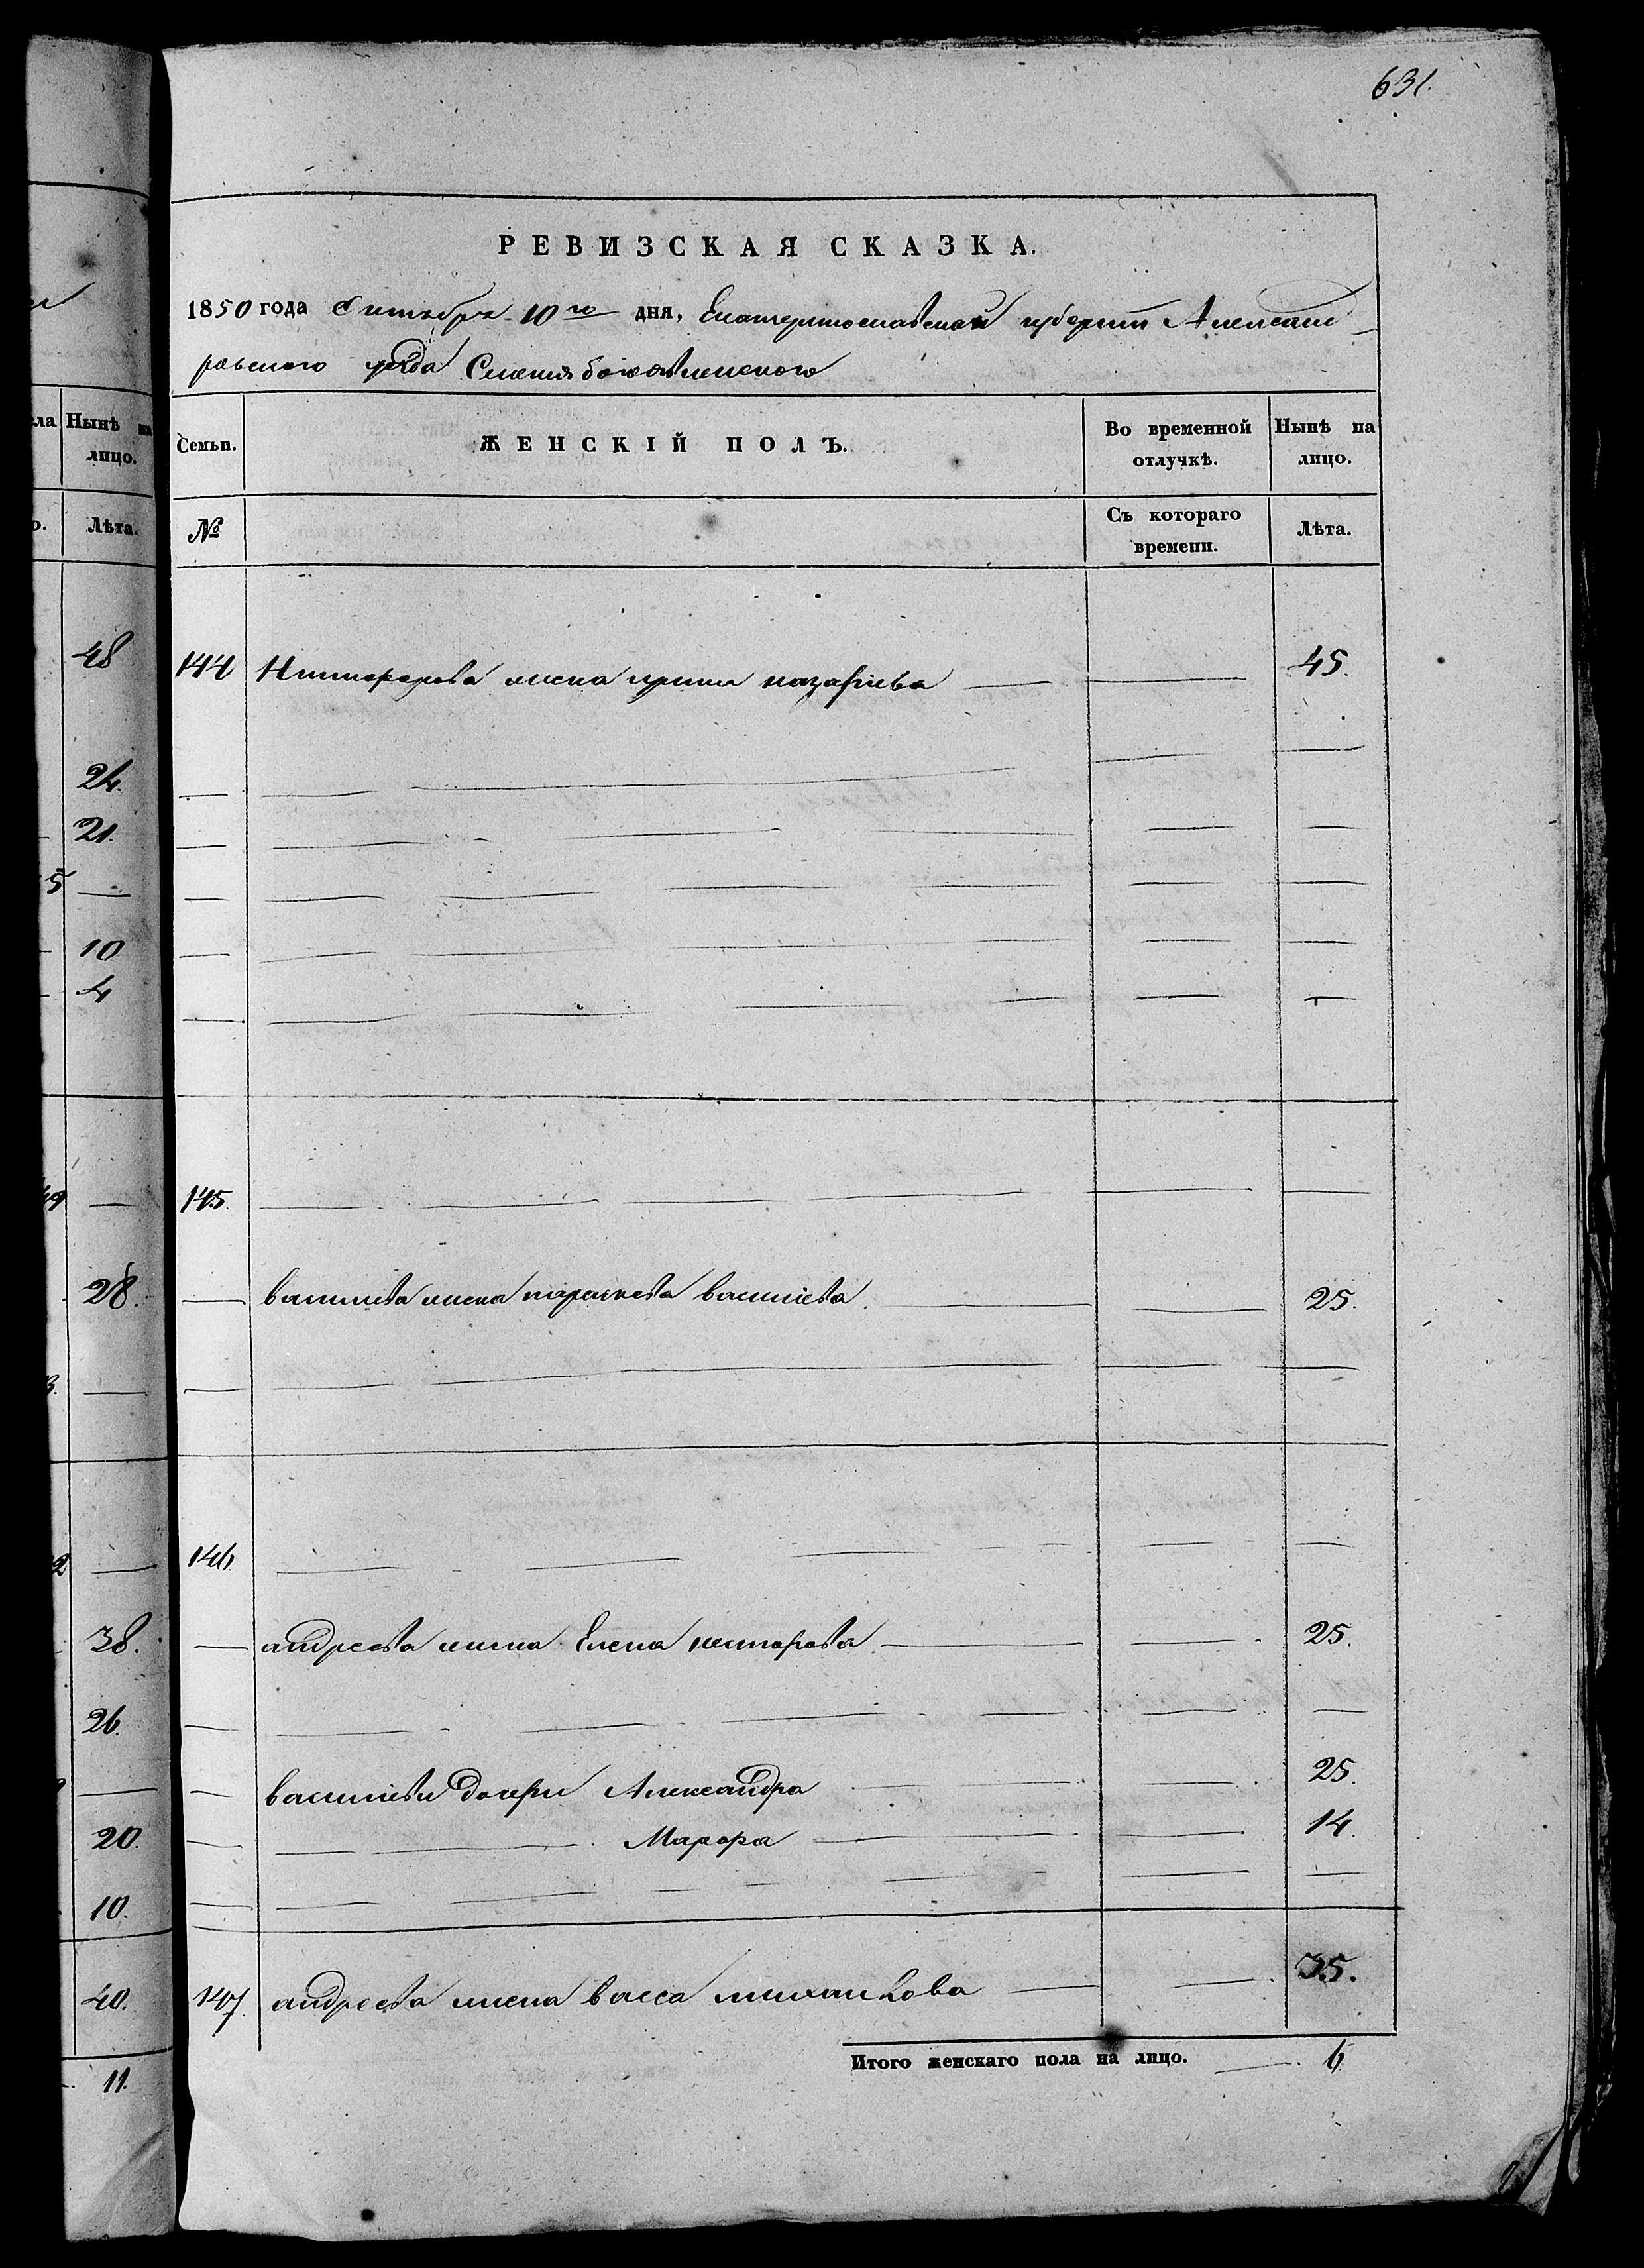 631.
РЕВИЗСКАЯ СКАЗКА.
1850 года Октября 10го дня, Екатеринославской губернии Александ-
ровского уезда Селения богоявленского
Нынѣ на
лицо.
Лѣта.
48
24.
21.
5 —
10
4
28.
38.
26.
20.
10.
40.
11.
Семьи. ЖЕНСКІЙ ПОЛЪ. Во временной отлучкѣ. Нынѣ на лицо.
№ Съ котораго времени. Лѣта.
144 Никифорова жена ирина назарьева — — 45.
145. — — —
— василиева жена параскева василиева — — 25.
146. — — —
— андреева жена Елена нестерова — — 25.
— василиевы дочери Александра — — 25.
— — Марфа — — 14.
147. андреева жена васса михайлова — — 35.
Итого женскаго пола на лицо. — 6